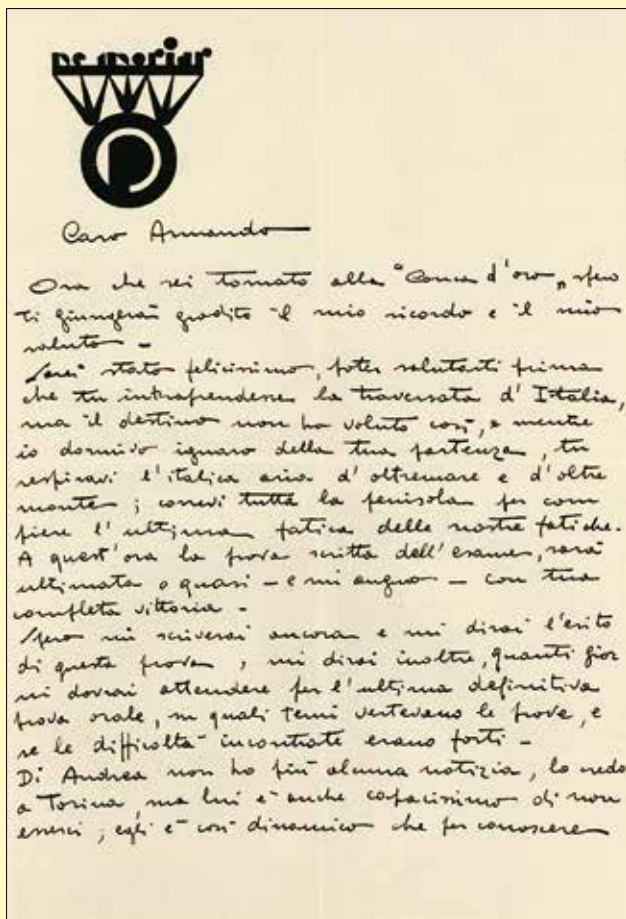 ne moriar
Caro Armando
Ora che sei tornato alla "Conca d'oro„ spero
ti giungerà gradito il mio ricordo e il mio
saluto -
Sarei stato felicissimo, poter salutarti prima
che tu intraprendessi la traversata d'Italia,
ma il destino non ha voluto così, e mentre
io dormivo ignaro della tua partenza, tu
respiravi l'italica aria d'oltremare e d'oltre
monte; correvi tutta la penisola per com
piere l'ultima fatica delle nostre fatiche.
A quest'ora la prova scritta dell'esame, sarà
ultimata o quasi - e mi auguro - con tua
completa vittoria -
Spero mi scriverai ancora e mi dirai l'esito
di questa prova, mi dirai inoltre, quanti gior
ni dovrai attendere per l'ultima definitiva
prova orale, su quali temi vertevano le prove, e
se le difficoltà incontrate erano forti -
Di Andrea non ho più alcuna notizia, lo credo
a Torino, ma lui è anche capacissimo di non
esserci; egli è così dinamico che per conoscere